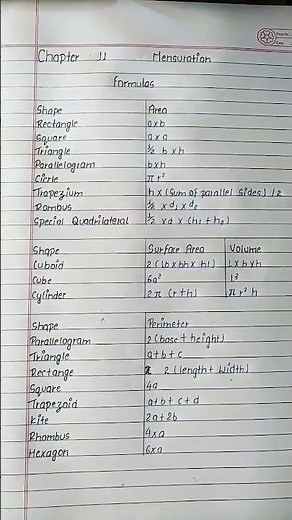 Chapter 11 Mensuration
Formulas
Shape Area
Rectangle a×b
Square a×a
Triangle ½ b×h
Parallelogram b×h
Cicrle πr²
Trapezium h×(Sum of parallel sides)/2
Rombus ½ × d₁ × d₂
Special Quadrilateral ½ ×d × (h₁+h₂)
Shape Surface Area Volume
Cuboid 2(lb×bh×hl) l×b×h
Cube 6a² l³
Cylinder 2π (r+h) πr²h
Shape Perimeter
Parallelogram 2(base+height)
Triangle a+b+c
Rectange 2(length+width)
Square 4a
Trapezoid a+b+c+d
Kite 2a+2b
Rhombus 4×a
Hexagon 6×a